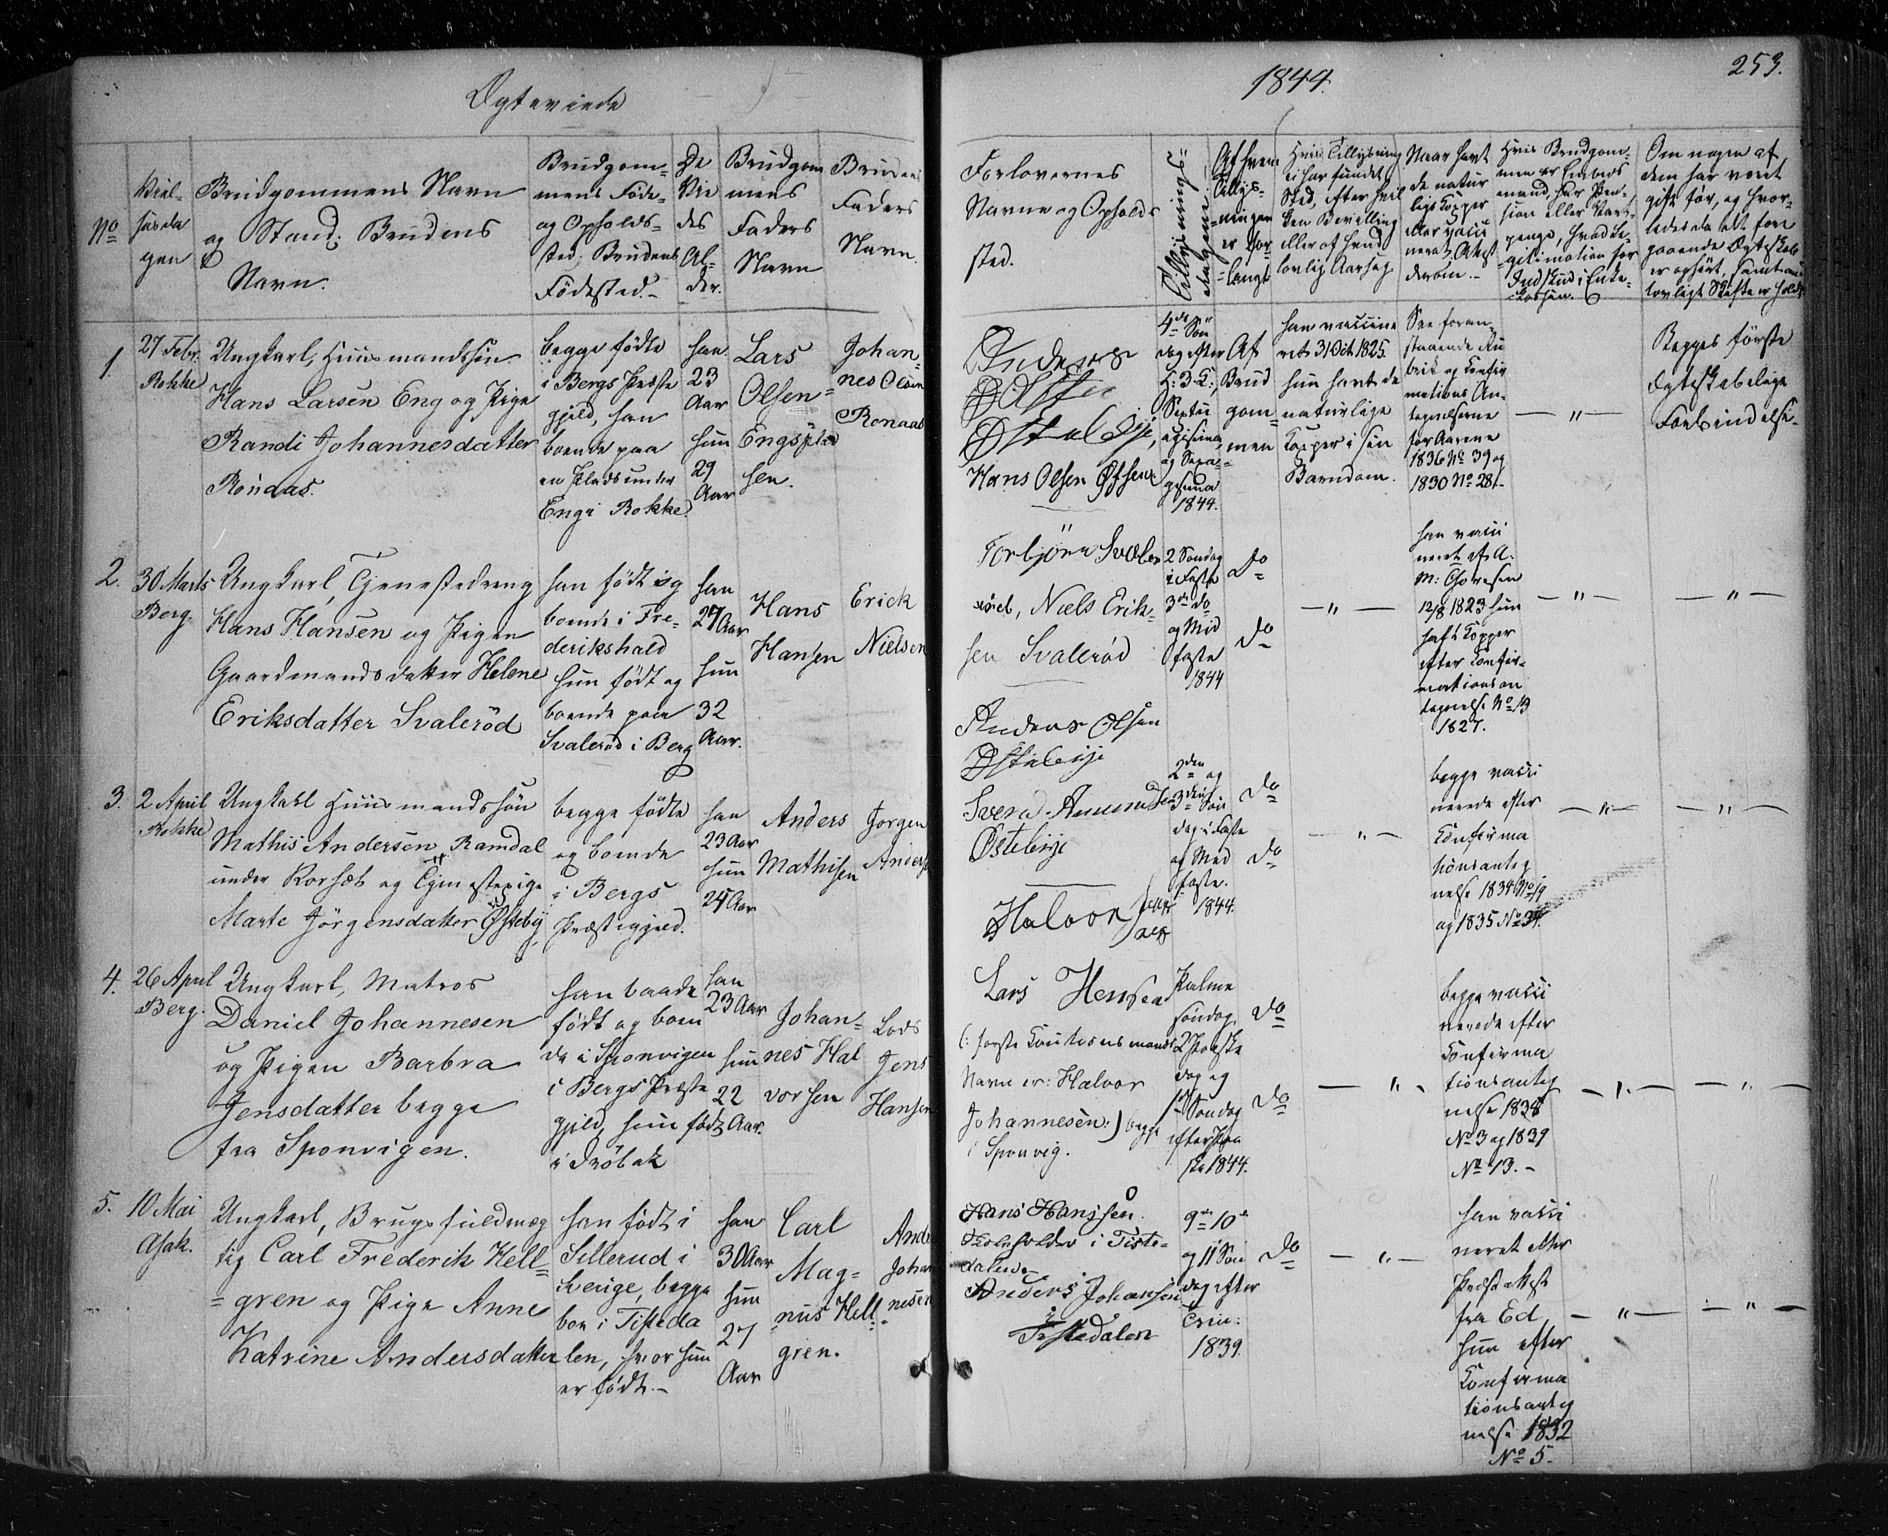 Ægteviede
1844.
253.
No
Viel-
sesda
gen
Brudgommens Navn
og Stand; Brudens
Navn.
Brudgom-
mens Føde-
og Opholds-
sted; Brudens
Fødested.
De
Vie
des
Al-
der.
Brudgom
mens
Faders
Navn
Brudens
Faders
Navn.
Forlovernes
Navne og Opholds
sted.
Tillysnings-
dagene.
Af hvem
Tillys-
ningen
er for-
langt
Hvis Tillysning
ei har fundet
Sted, efter hvil
ken Bevilling
eller af hvad
lovlig Aarsag
Naar havt
de natur
lige Kopper
eller vacci
neret, Attest
derom.
Hvis Brudgom-
men er Embeds
mand, har Pen-
sion eller Vart-
penge, hvad Le-
gitimation for
Indskud i Enke-
kassen.
Om nogen af
dem har været
gift før, og hvor-
ledes da det fore
gaaende Ægteskab
er ophørt, samt om
lovligt Skifte er holdt
1.
27 Febr.
Rokke
Ungkarl, Huusmandssøn
Hans Larsen Eng og Pige
Randi Johannesdatter
Rönaas.
begge fødte
i Bergs Præste
gjeld, han
boende paa
en Plads under
Eng i Rokke.
han
23
Aar
hun
29
Aar
Lars
Olsen
Engsplad
sen.
Johan-
nes Olsen
Ronaas
Anders
Olsen
Østebye,
Hans Olsen
4de Søn
dag efter
H: 3 K:,
Septu
agesima,
og Sexa-
gesima
1844.
Af
Brud
gom-
men
han vaccine
ret 31 Oct 1825.
hun havt de
naturlige
Kopper i sin
Barndom.
See foran-
staaende Ru
brik og Confir
mations An-
tegnelserne
for Aarene
1836 No 39 og
1830 No 28.
— " —
Begges første
Ægteskabelige
Forbindelse.
2.
30 Marts
Berg.
Ungkarl, Tjenestedreng
Hans Hansen og Pigen
Gaardmandsdatter Helene
Eriksdatter Svalerød
han født og
boende i Fre-
derikshald
hun født og
boende paa
Svalerød i Berg
han
27 Aar
hun
32
Aar.
Hans
Hansen
Erick
Nielsen
Torbjørn Svale-
röd, Niels Erik-
sen Svalerød
2 Søndag
i Faste
3de do
og Mid
faste
1844
Do
Do
— " —
han vacci
neret af A.
M:
12/8 1823 hun
havt Kopper
efter Confir-
mationsan
tegnelse No 19
1827.
— " —
— " —
3.
2 April
Rokke
Ungkarl Huusmandssøn
Mathis Andersen Ramdal
under Korsæt og Tjenestepige
Marte Jörgensdatter Østeby
begge fødte
og boende
i Bergs
Præstegjeld.
han
23 Aar
hun
24 Aar
Anders
Mathisen
Jorgen
Anders
Anders Olsen
Østebye
Svend
Østebye
2den og
3die Søn
dag i Faste
og Mid
faste.
1844.
Do
Do
— " —
begge vacci
nerede efter
Confirma
tionsanteg
nelse 1834 No 19
og 1835 No 34.
— " —
— " —
4.
26 April
Berg.
Ungkarl, Matros
Daniel Johannesen
og Pigen Barbra
Jensdatter begge
fra Sponvigen.
han baade
født og boen
de i Sponvigen
i Bergs Præste
gjeld, hun født
i Dröbak
han
23 Aar
hun
22
Aar.
Johan-
nes Hal
vorsen
Lods
Jens
Hansen
Halvor
Lars Hensen
(: første Cautionsmands
Navn er: Halvor
Johannesen:) begge
i Sponvig.
Palme
søndag,
2 Paaske
dag og
1ste Søndag
efter Paa
ske 1844.
Do
Do
— " —
begge vacci
nerede efter
Confirma
tionsanteg
nelse 1838
No 3 og 1839
No 13.
— " —
— " —
5.
10 Mai
Asak.
Ungkarl, Brugsfuldmæg
tig Carl Frederik Hell-
gren og Pige Anne
Katrine Andersdatter
han født i
Sillerud i
Sverige, begge
boe i Tisteda
len, hvor hun
er født.
han
30 Aar
hun
27
Aar
Carl
Mag-
nus Hell-
gren.
Ande
Johan
nesen
Hans Hanssen
i Tiste-
dalen.
Anders Johansen
Tistedalen
9de 10e
og 11 Søn
dag efter
Trin:
1839.
Do
— " —
han vacci
neret efter
Præsteattest
fra Ed,
hun efter
Confirma
tionsanteg
nelse 1832
No 5.
— " —
— " —